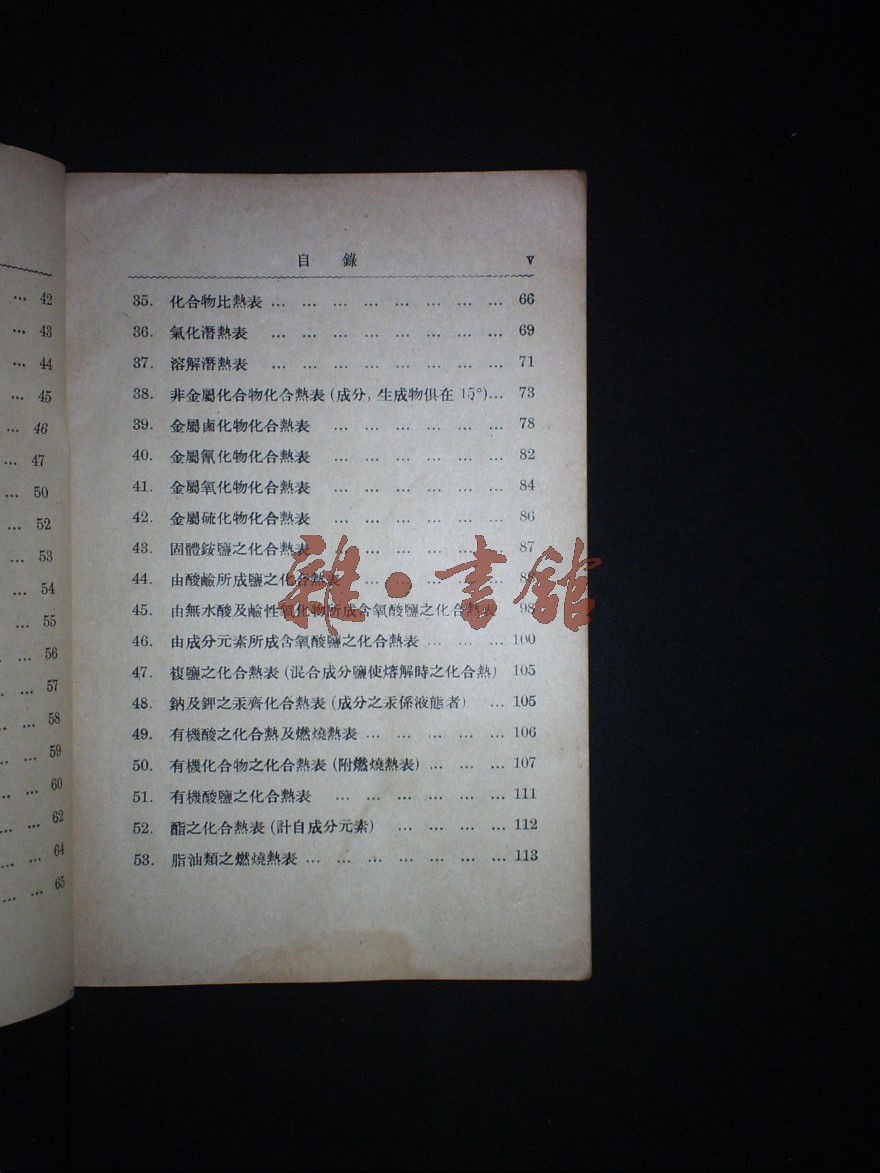 ... 42
... 43
... 44
... 45
... 46
... 47
... 50
... 52
... 53
... 54
... 55
... 56
... 57
... 58
... 59
... 60
... 62
... 64
... 65
目 錄 V
35. 化合物比熱表 ... ... ... ... ... ... ... ... 66
36. 氣化潛熱表 ... ... ... ... ... ... ... ... 69
37. 溶解潛熱表 ... ... ... ... ... ... ... ... 71
38. 非金屬化合物化合熱表(成分, 生成物俱在 15°)... 73
39. 金屬鹵化物化合熱表 ... ... ... ... ... ... 78
40. 金屬氰化物化合熱表 ... ... ... ... ... ... 82
41. 金屬氧化物化合熱表 ... ... ... ... ... ... 84
42. 金屬硫化物化合熱表 ... ... ... ... ... ... 86
43. 固體銨鹽之化合熱表 ... ... ... ... ... 87
44. 由酸鹼所成鹽之化合熱表 ... ... ... ... ...
45. 由無水酸及鹼性氧化物所成含氧酸鹽之化合熱表 98
46. 由成分元素所成含氧酸鹽之化合熱表 ... ... ... 100
47. 複鹽之化合熱表(混合成分鹽使熔解時之化合熱) 105
48. 鈉及鉀之汞齊化合熱表(成分之汞係液態者) ... 105
49. 有機酸之化合熱及燃燒熱表 ... ... ... ... ... 106
50. 有機化合物之化合熱表(附燃燒熱表) ... ... ... 107
51. 有機酸鹽之化合熱表 ... ... ... ... ... ... 111
52. 酯之化合熱表(計自成分元素) ... ... ... ... 112
53. 脂油類之燃燒熱表 ... ... ... ... ... ... ... 113
雜·書館